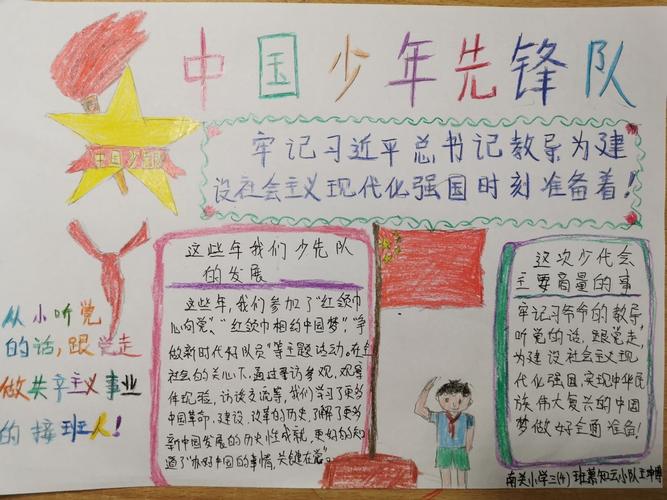 中国少年先锋队
中国少先队
牢记习近平总书记教导为建
设社会主义现代化强国时刻准备着！
这些年我们少先队
的发展
这些年，我们参加了“红领巾
心向党”、“红领巾相约中国梦”、“争
做新时代好队员”等主题活动。在全
社会的关心下，通过寻访参观、观察
体验、访谈交流等，我们学习了更多
中国革命、建设、改革的历史，了解了更多
新中国发展的历史性成就，更好的知
道了“办好中国的事情，关键在党”。
这次少代会
主要商量的事
牢记习爷爷的教导，
听党的话，跟党走，
为建设社会主义现
代化强国，实现中华民
族伟大复兴的中国
梦做好全面准备！
从小听党
的话，跟党走
做共产主义事业
的接班人！
南关小学三(4)班